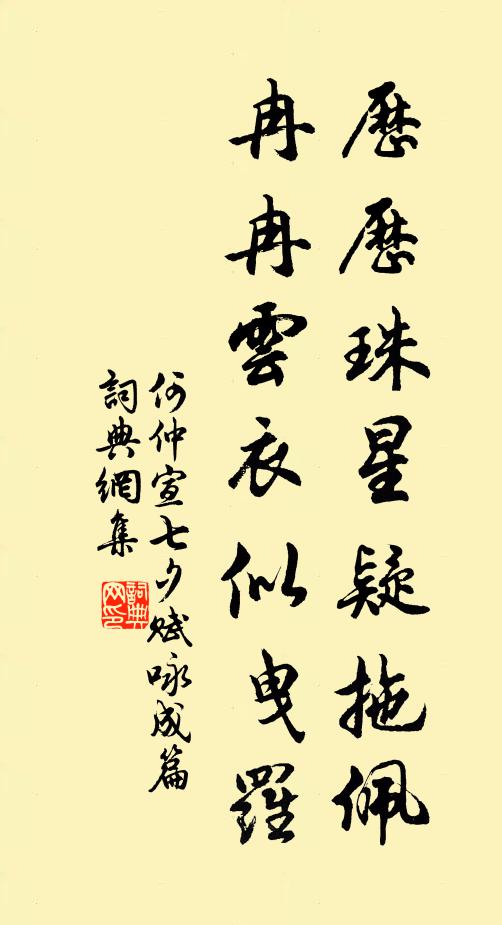 歷歷珠星疑拖佩
冉冉雲衣似曳羅
何仲宣七夕賦咏成篇
詞典網集
詞典網印